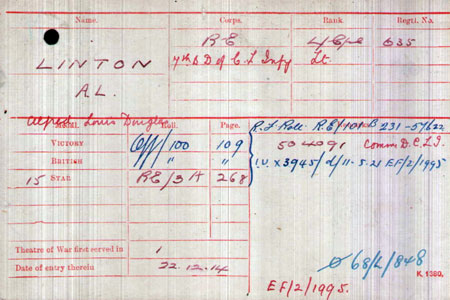 Name. Corps. Rank Regtl. No.
R E L Cpl 635
LINTON 7th B D of C L Infy Lt
A L.
Alfred Louis Douglas
Medal. Roll. Page.
R E/101 B 231-
VICTORY Off/100 109 504091 Comm D.C.L.I.
BRITISH " " I.V. X 3945/d/11-5-21 EF/2/1995
15 STAR RE/3 A 268
Theatre of War first served in 1
Date of entry therein 22.12.14
68/L/848
K. 1380.
EF/2/1995.